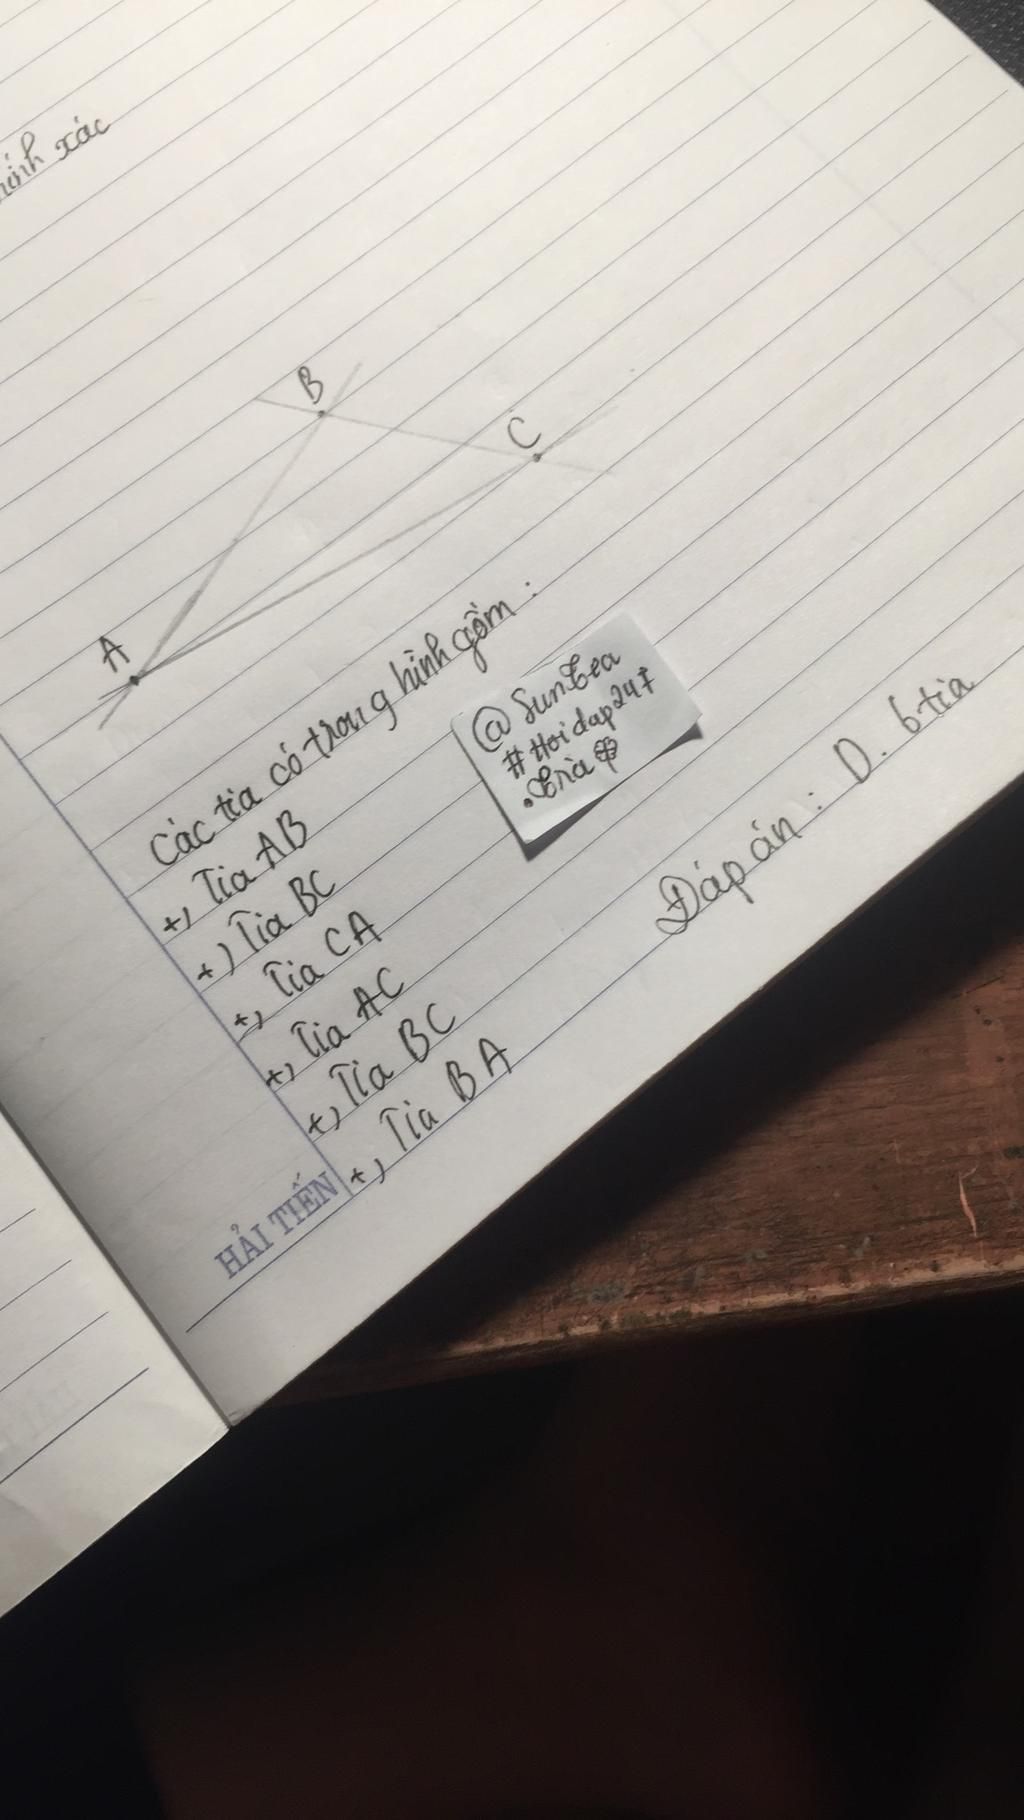 xác
B
C
A
Các tia có trong hình gồm :
+, Tia AB
+) Tia BC
+, Tia CA
+, Tia AC
+, Tia BC
+, Tia BA
@Suntea
#Hoidap247
Đáp án : D. 6 tia
HẢI TIẾN